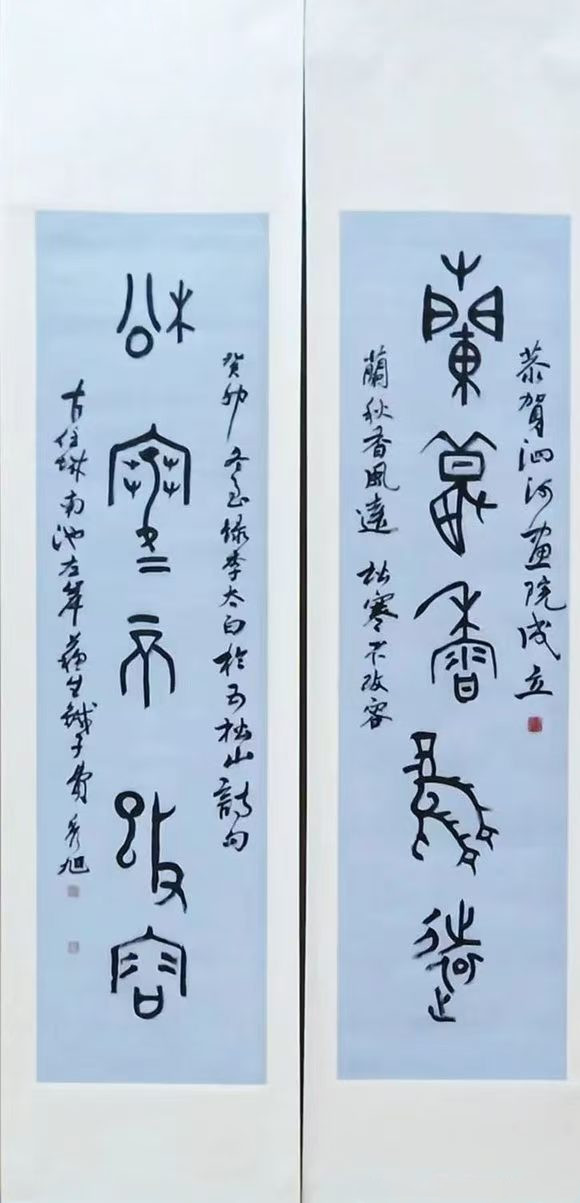 恭賀泗河畫院成立
蘭秋香風遠
蘭秋香風遠 松寒不改容
癸卯冬至錄李太白於五松山詩句
松寒不改容
古任城南池左岸